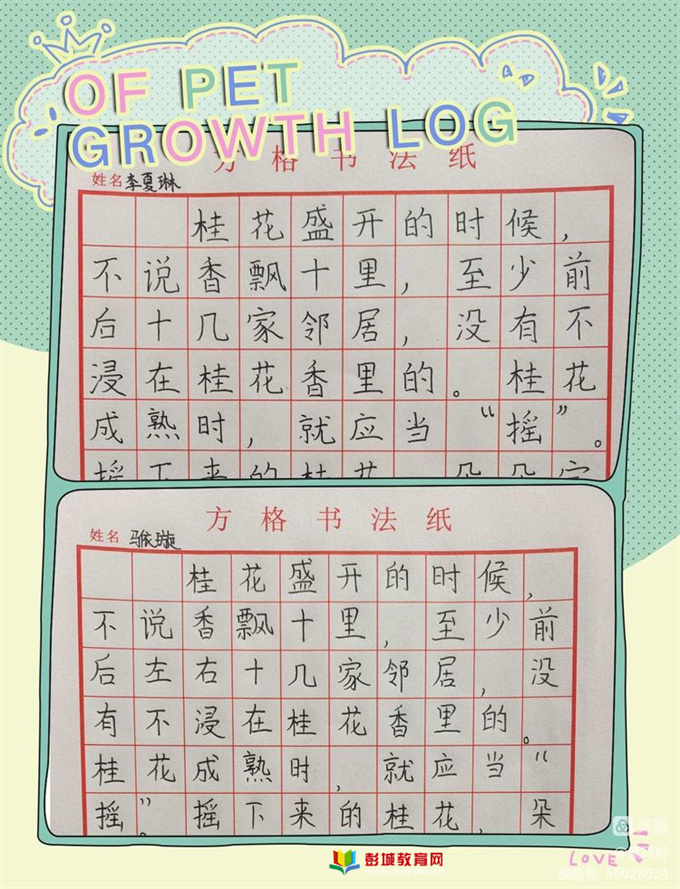 OF PET
GROWTH LOG
方格书法纸
姓名 李夏琳
桂花盛开的时候，
不说香飘十里，至少前
后十几家邻居，没有不
浸在桂花香里的。桂花
成熟时，就应当“摇”。
摇下来的桂花 朵朵完
方格书法纸
姓名
桂花盛开的时候，
不说香飘十里，至少前
后左右十几家邻居，没
有不浸在桂花香里的。
桂花成熟时，就应当“
摇”。摇下来的桂花，朵
彭城教育网
LOVE
56028034